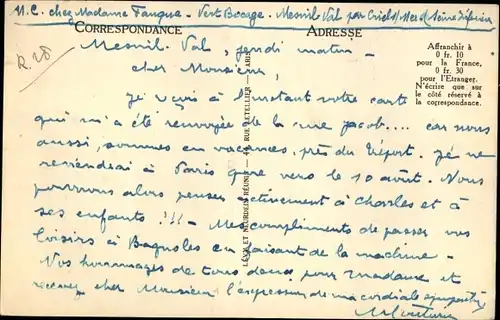 M.C. chez Madame Fangue - Vert Bocage - Mesnil Val par Criel s/Mer (Seine Inférieure)
CORRESPONDANCE
ADRESSE
R. 28
Mesnil-Val, jeudi matin
cher Monsieur,
Affranchir à
0 fr. 10
pour la France,
0 fr. 30
pour l'Etranger.
N'écrire que sur
le côté réservé à
la correspondance.
Je reçois à l'instant votre carte
qui m'a été renvoyée de la rue Jacob.... car nous
aussi, sommes en vacances, près du Tréport. Je ne
reviendrai à Paris que vers le 10 août. Nous
pourrons alors penser activement à Charles et à
ses enfants !!! - Mes compliments de passer vos
loisirs à Bagnoles en faisant de la machine -
Vos hommages de tous deux pour Madame et
recevez cher Monsieur l'expression de ma cordiale sympathie
LÉVY ET NEURDEIN RÉUNIS - 44, RUE LETELLIER, PARIS